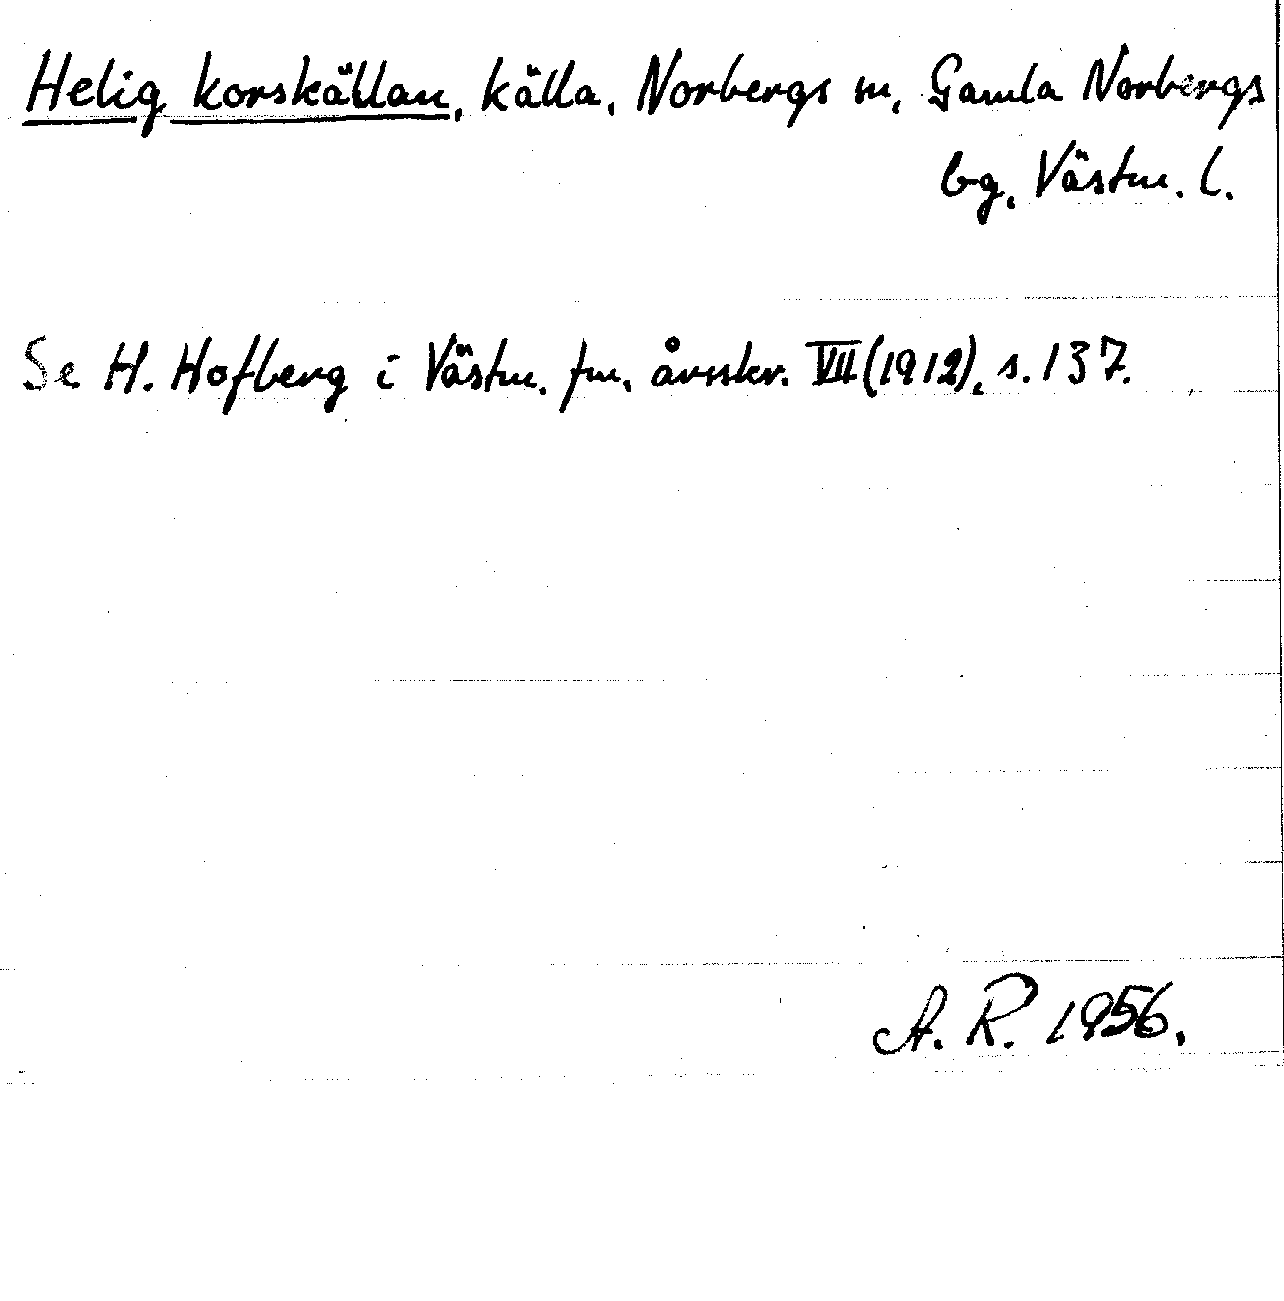 Helig korskällan, källa, Norbergs sn, Gamla Norbergs
bg, Västm. l.
Se H. Hofberg i Västm. fm. årsskr. VII (1912), s. 137.
A. R. 1956.